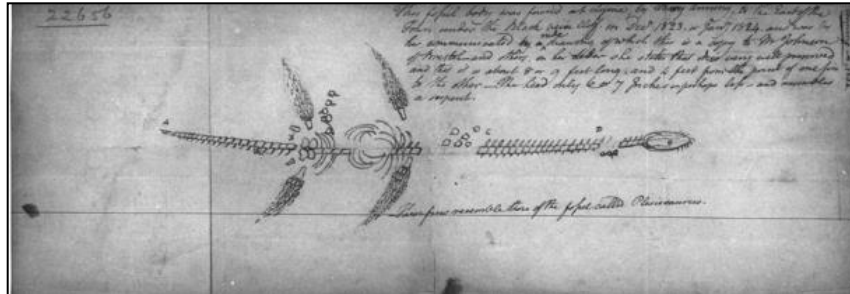 22656
This fossil below was found at Lyme, by Mary Anning, to the East of the
Town under the Black Ven Cliff in Decr. 1823, or Jany. 1824 and was to
be communicated by a rude drawing of which this is a copy to Mr Johnson
of Bristol and others, in her letter she states that it is very well preserved
and that it is about 8 or 9 feet long, and 4 feet from the point of one fin
to the other — The head only 6 or 7 Inches or perhaps less — and resembles
a serpent.
These fins resemble those of the fossil called Plesiosaurus.